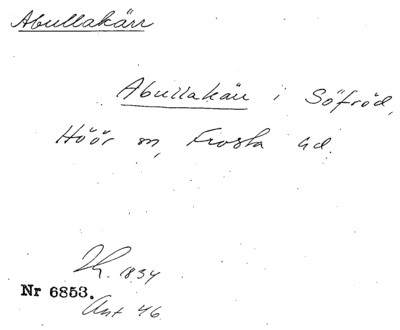 Abullakärr
Abullakärr i Söfröd,
Höör sn, Frosta hd.
Lh. 1834
Nr 6853.
Ant 46.